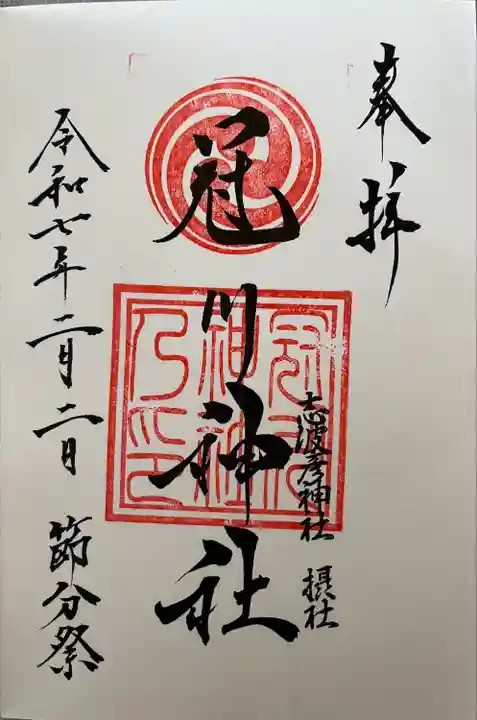 奉拝
志波彦神社 摂社
冠川神社
令和七年二月二日 節分祭